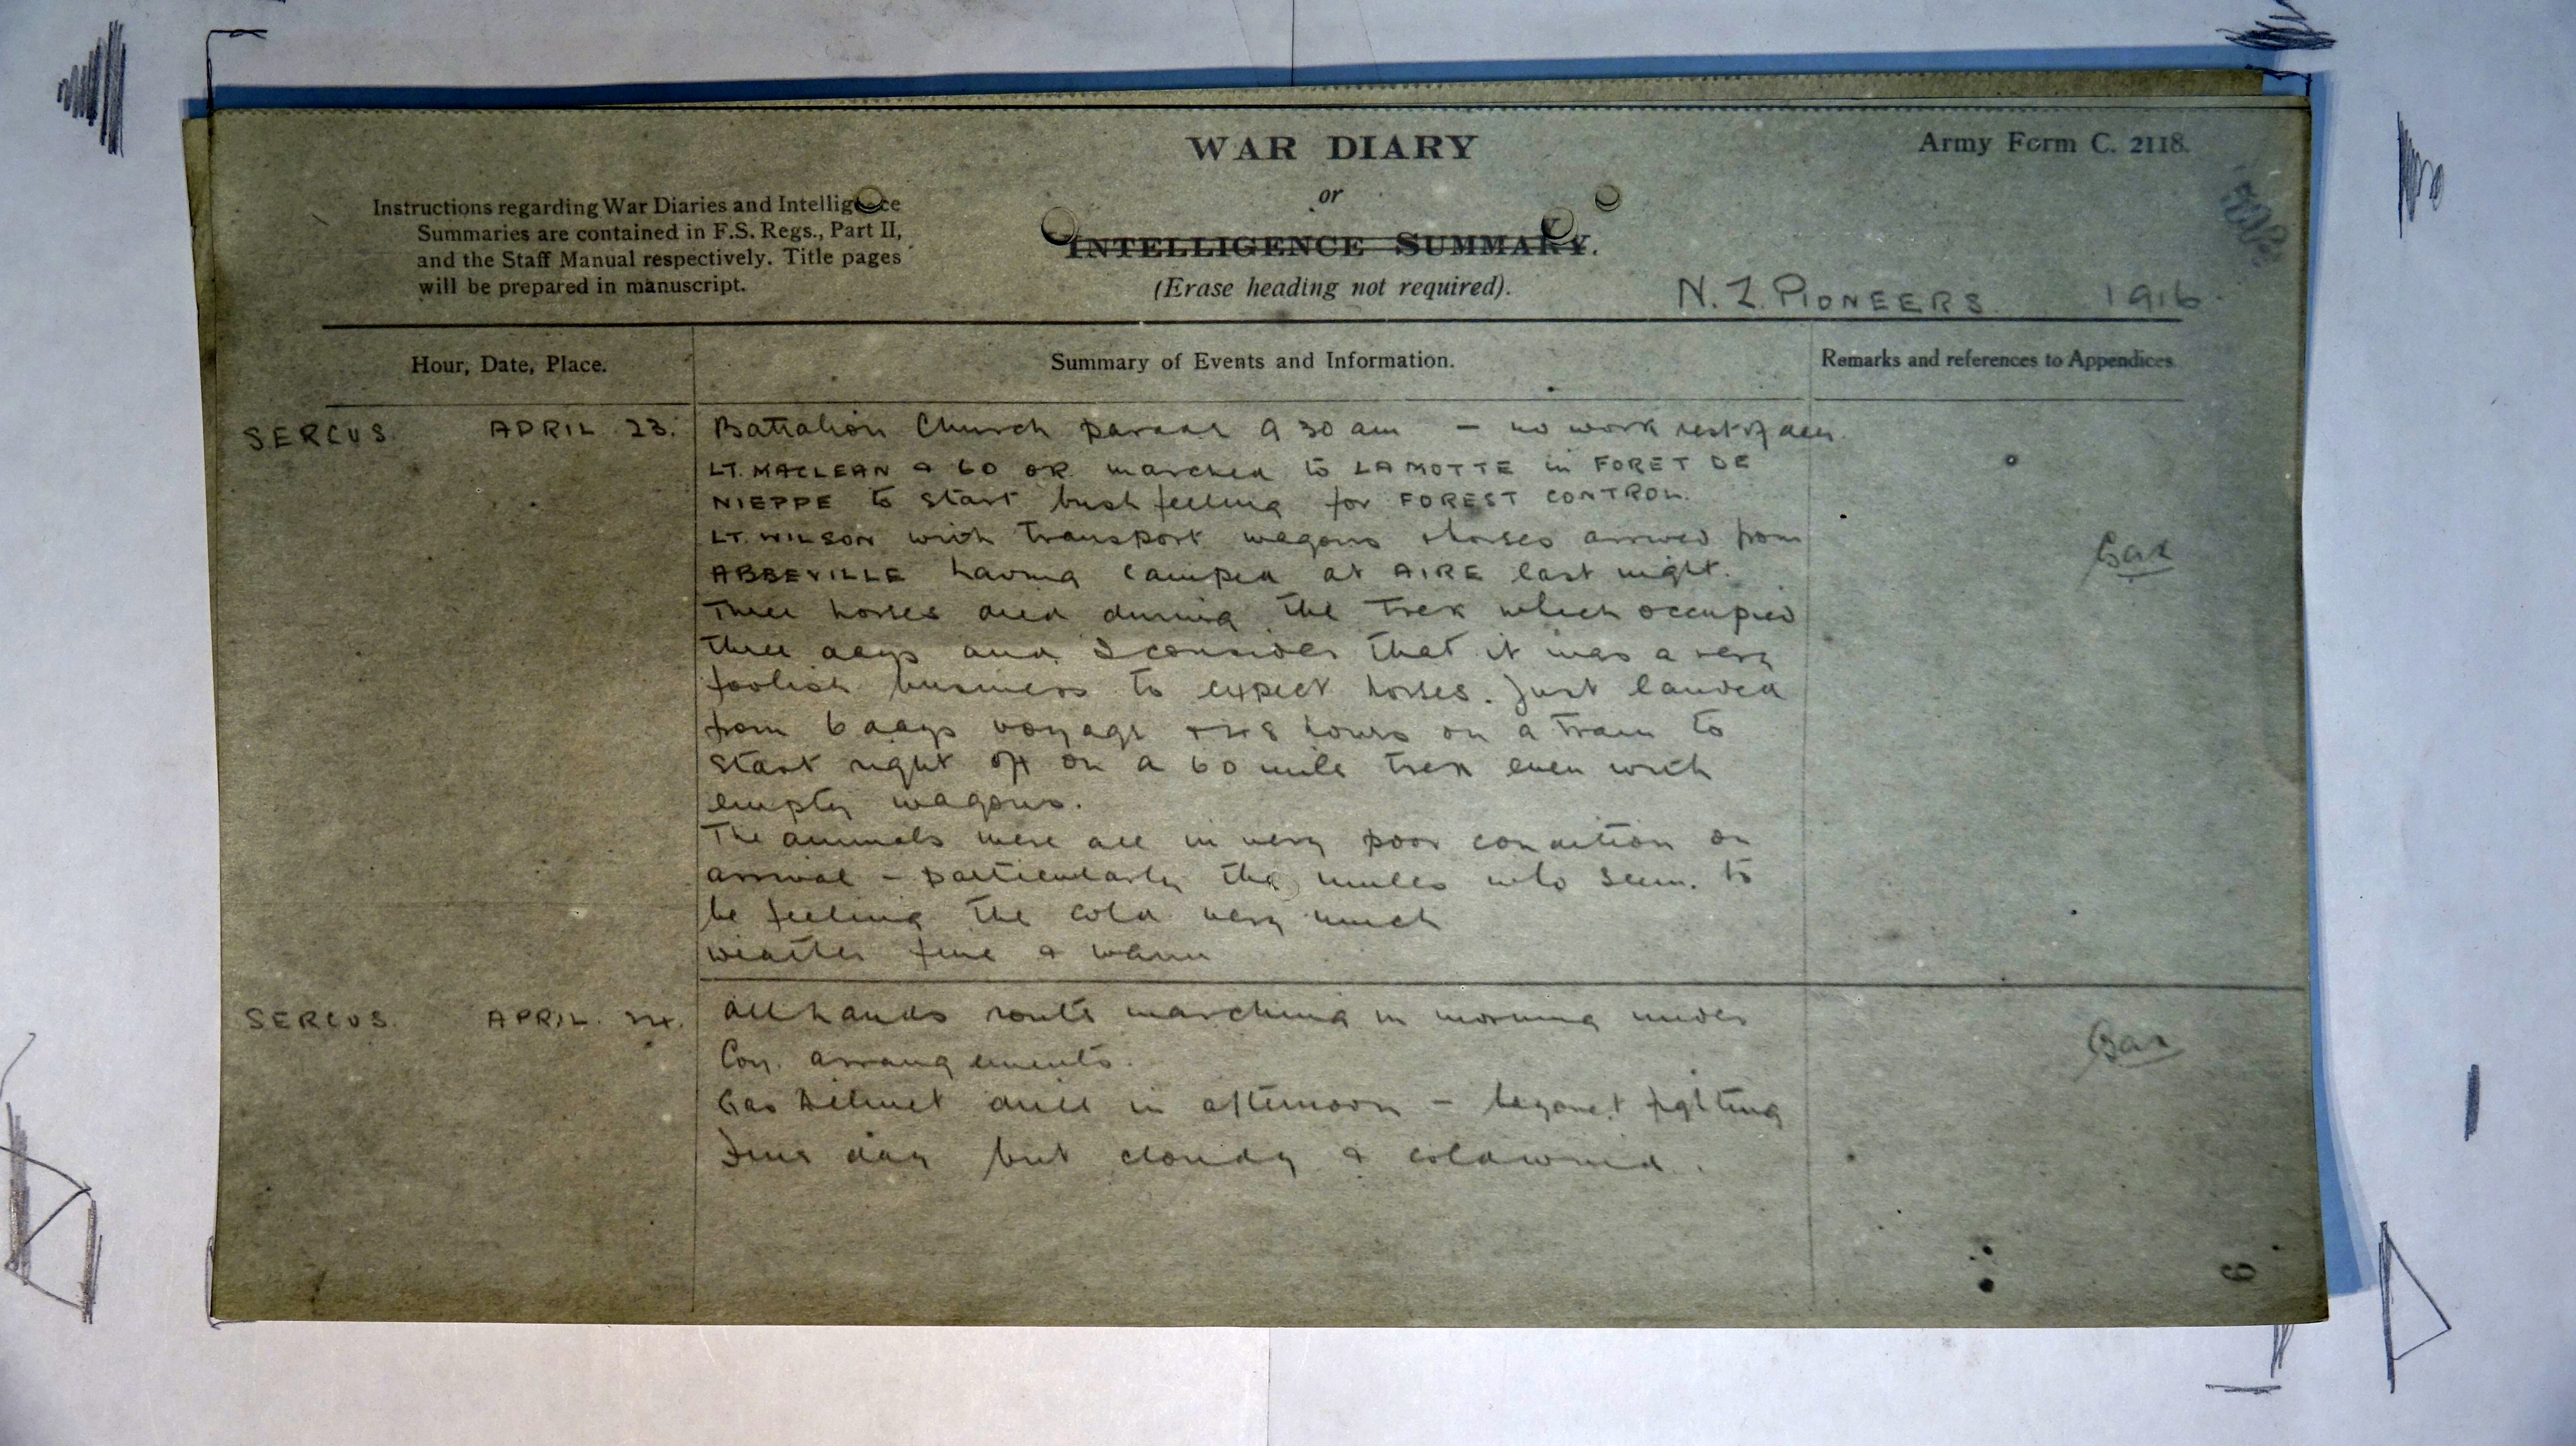 WAR DIARY
or
INTELLIGENCE SUMMARY.
(Erase heading not required).
Army Form C. 2118.
Instructions regarding War Diaries and Intelligence
Summaries are contained in F.S. Regs., Part II,
and the Staff Manual respectively. Title pages
will be prepared in manuscript.
N.Z. PIONEERS 1916.
Hour, Date, Place.
Summary of Events and Information.
Remarks and references to Appendices
SERCUS. APRIL 23.
Battalion Church parade 9 30 am - no work rest of day.
LT. MACLEAN & 60 OR marched to LA MOTTE in FORET DE
NIEPPE to start bush felling for FOREST CONTROL.
LT. WILSON with transport wagons & horses arrived from
ABBEVILLE having camped at AIRE last night.
Three horses died during the trek which occupied
three days and I consider that it was a very
foolish business to expect horses. Just landed
from 6 days voyage & 48 hours on a train to
start right off on a 60 mile trek even with
empty wagons.
The animals were all in very poor condition on
arrival - particularly the mules who seem. to
be feeling the cold very much
weather fine & warm
SERCUS. APRIL. 24.
All hands route marching in morning under
Coy. arrangements.
Gas helmet drill in afternoon - bayonet fighting
Fine day but cloudy & cold wind.
6